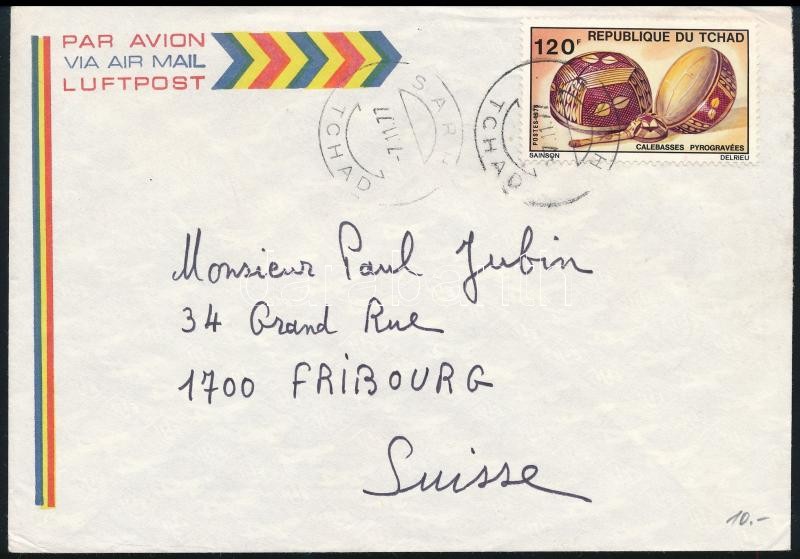 PAR AVION
VIA AIR MAIL
LUFTPOST
REPUBLIQUE DU TCHAD
120F
POSTES 1978
CALEBASSES PYROGRAVÉES
SAINSON
DELRIEU
SARH
TCHAD
SARH
TCHAD
Monsieur Paul Jubin
34 Grand Rue
1700 FRIBOURG
Suisse
10.-